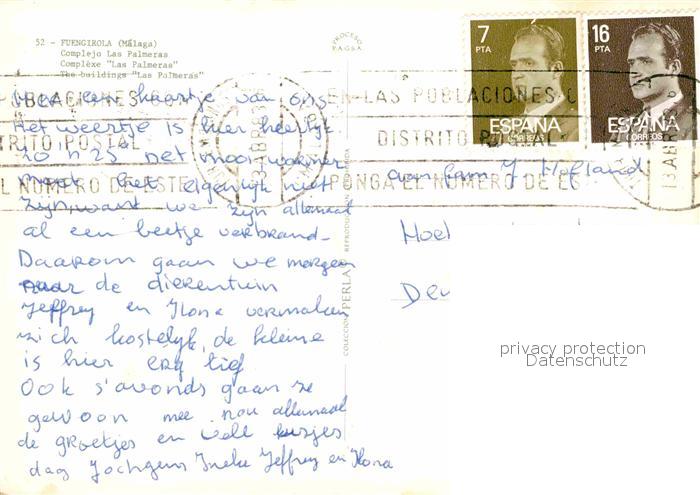 52 - FUENGIROLA (Málaga)
Complejo Las Palmeras
Complèxe "Las Palmeras"
The buildings "Las Palmeras"
PROCESO
P.A.G.S.A.
7
PTA
ESPAÑA
CORREOS
16
PTA
ESPAÑA
CORREOS
POBLACIONES
EN LAS POBLACIONES C
DISTRITO POSTAL
DISTRITO POSTAL
EL NUMERO DE ESTE
PONGA EL NUMERO DE ES
13 ABR
13 AB
Hier een kaartje van ons
Het weertje is hier heerlijk
zo'n 25 net mooi warmer
moet het eigenlijk niet
zijn, want we zijn allemaal
al een beetje verbrand.
Daarom gaan we morgen
naar de dierentuin
Jeffrey en Ilona vermaken
zich kostelijk, de kleine
is hier erg lief
Ook s'avonds gaan ze
gewoon mee nou allemaal
de groetjes en veel kusjes
dag Jochgem Ineke Jeffrey en Ilona
COLECCION PERLA
REPRODUCCION
aan fam J. Hofland
Hoe
De
privacy protection
Datenschutz